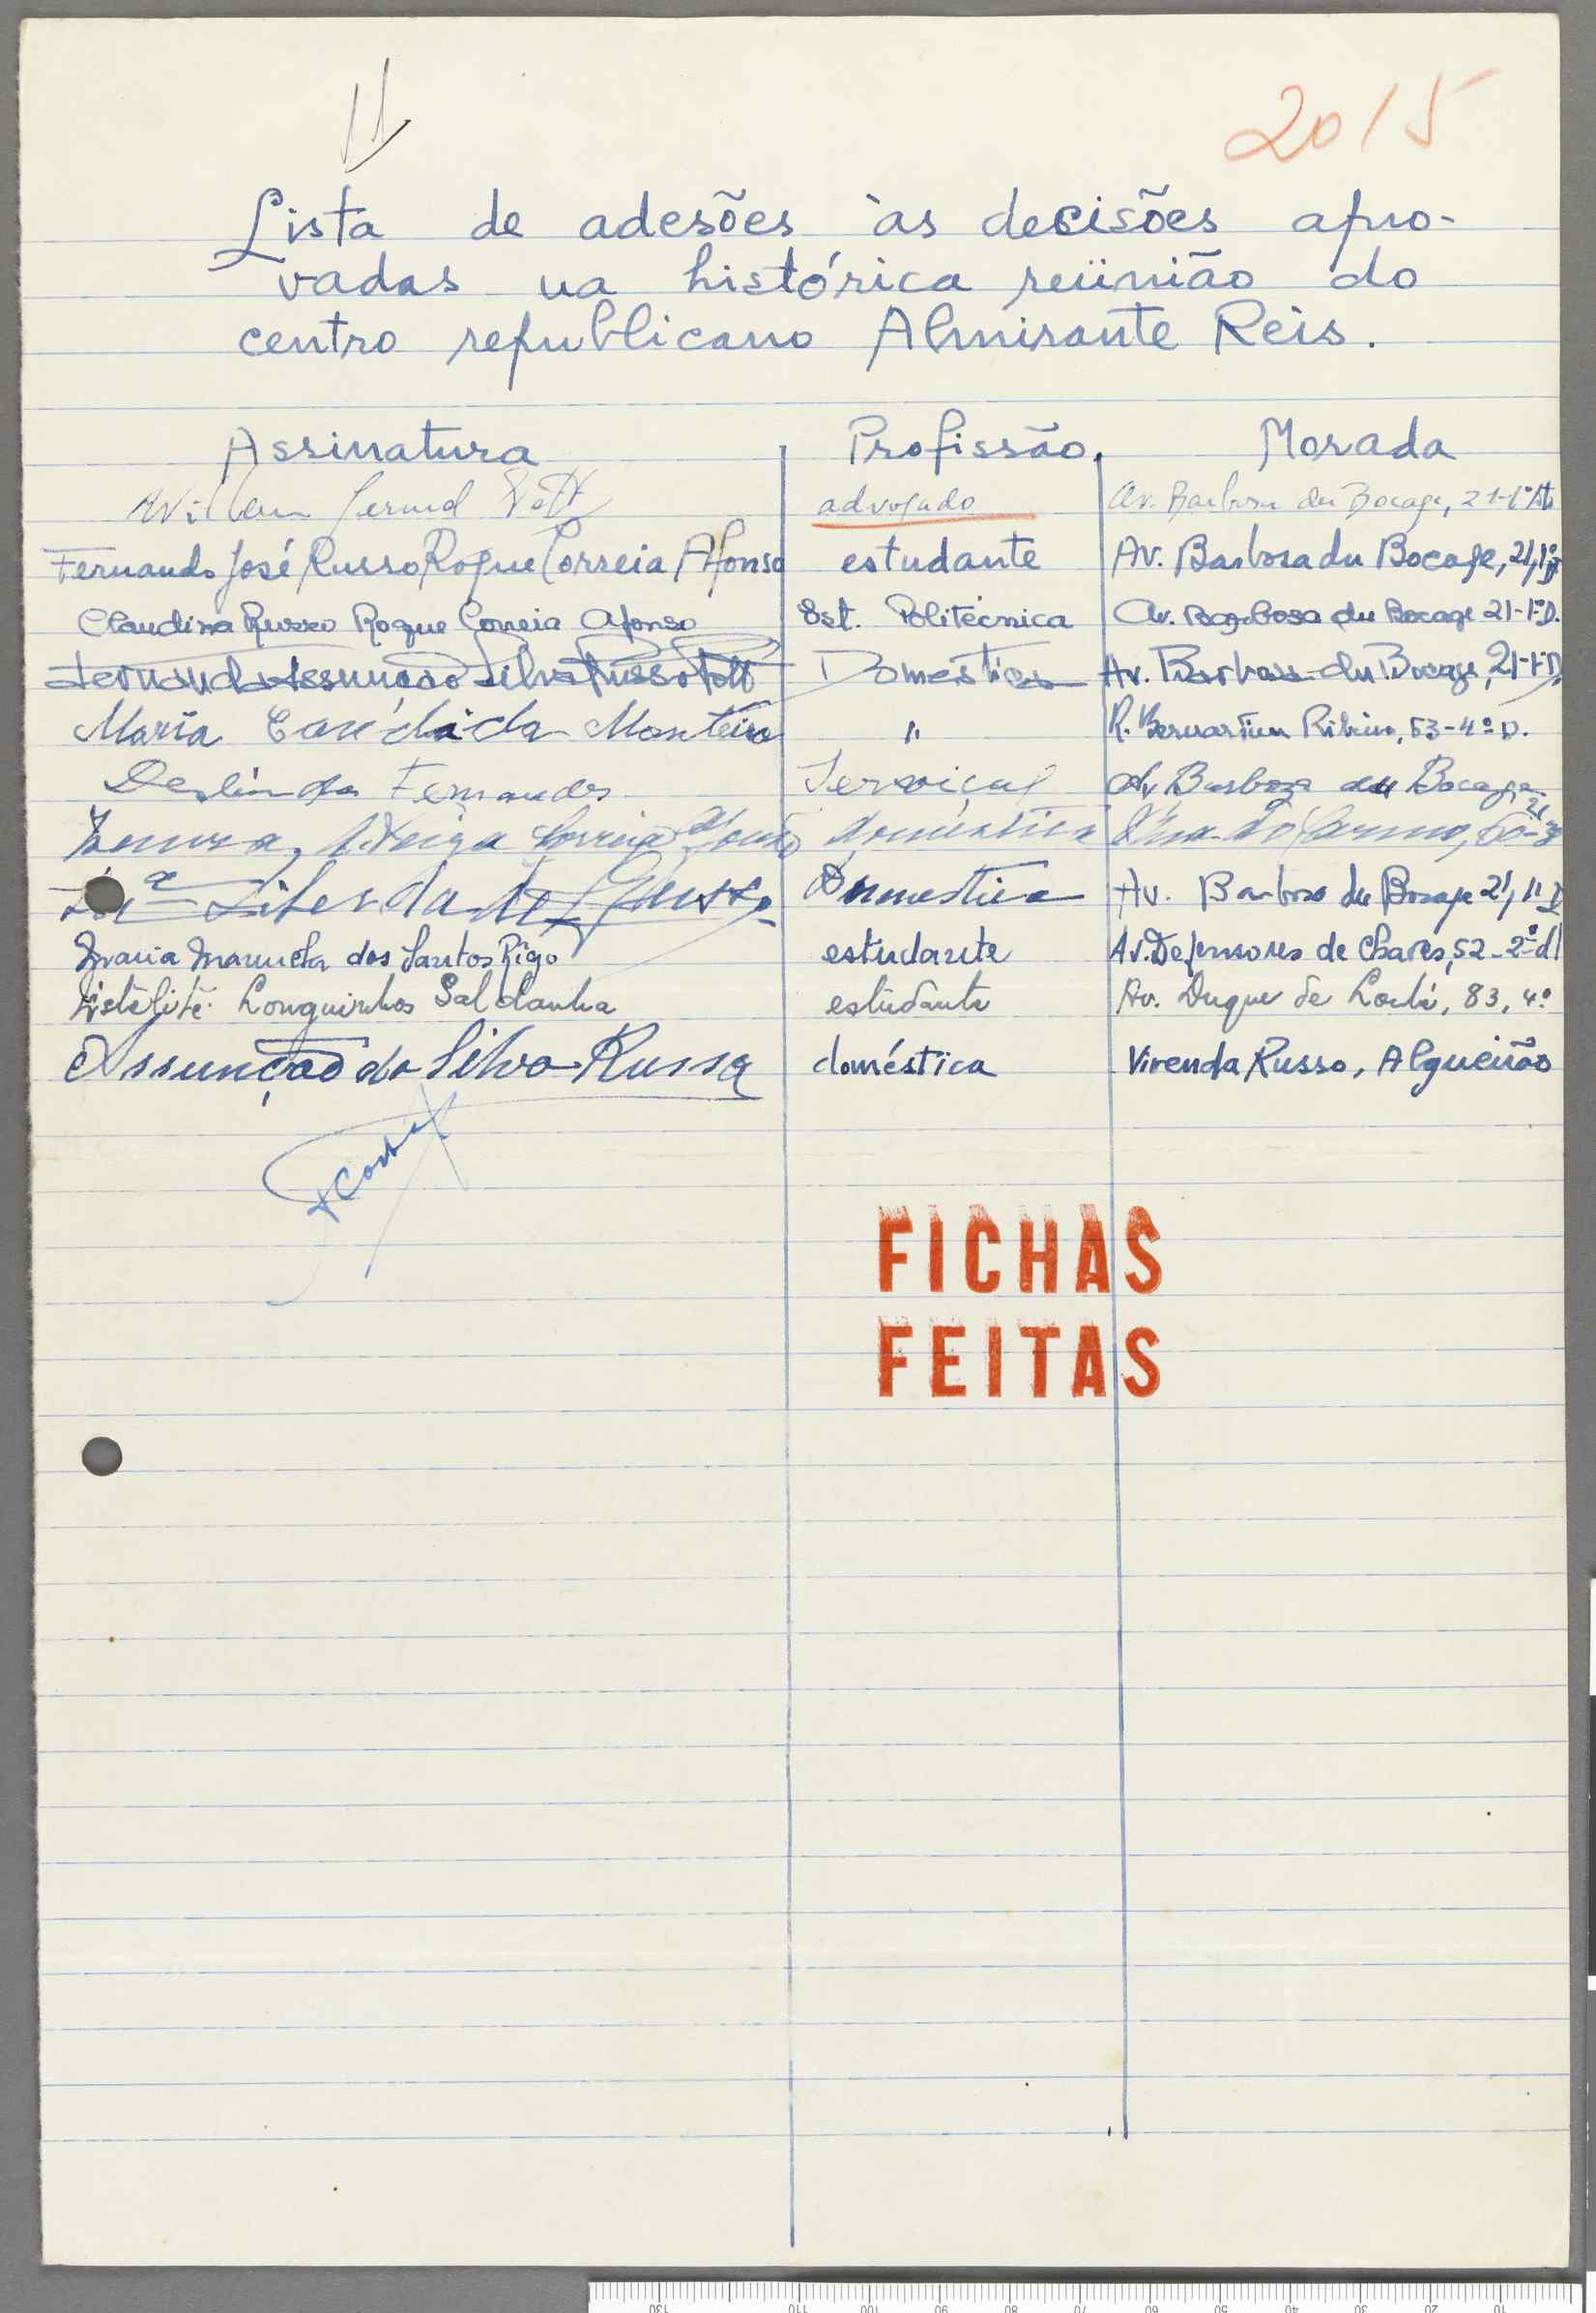 11
2015
Lista de adesões às decisões apro-
vadas na histórica reünião do
centro republicano Almirante Reis.
Assinatura Profissão Morada
advogado Av. Barbosa du Bocage, 21-1º
Fernando José Russo Roque Correia Afonso estudante Av. Barbosa du Bocage, 21, 1º D
Claudina Russo Roque Correia Afonso Est. Politécnica Av. Barbosa du Bocage 21-1º D.
Fernanda Assunção Silva Russo Doméstica Av. Barbosa du Bocage, 21-1º D.
Maria Cândida Monteiro " R. Bernardim Ribeiro, 53-4º D.
Deolinda Fernandes Serviçal Av. Barbosa du Bocage 21
Correia doméstica do Carmo, 60-3º
Liberdade Doméstica Av. Barbosa du Bocage 21, 1º D
Maria Manuela dos Santos Rigo estudante Av. Defensores de Chaves, 52-2º d
Longuinhos Saldanha estudante Av. Duque de Loulé, 83, 4º
Assunção da Silva Russo doméstica Vivenda Russo, Algueirão
Costa
FICHAS
FEITAS